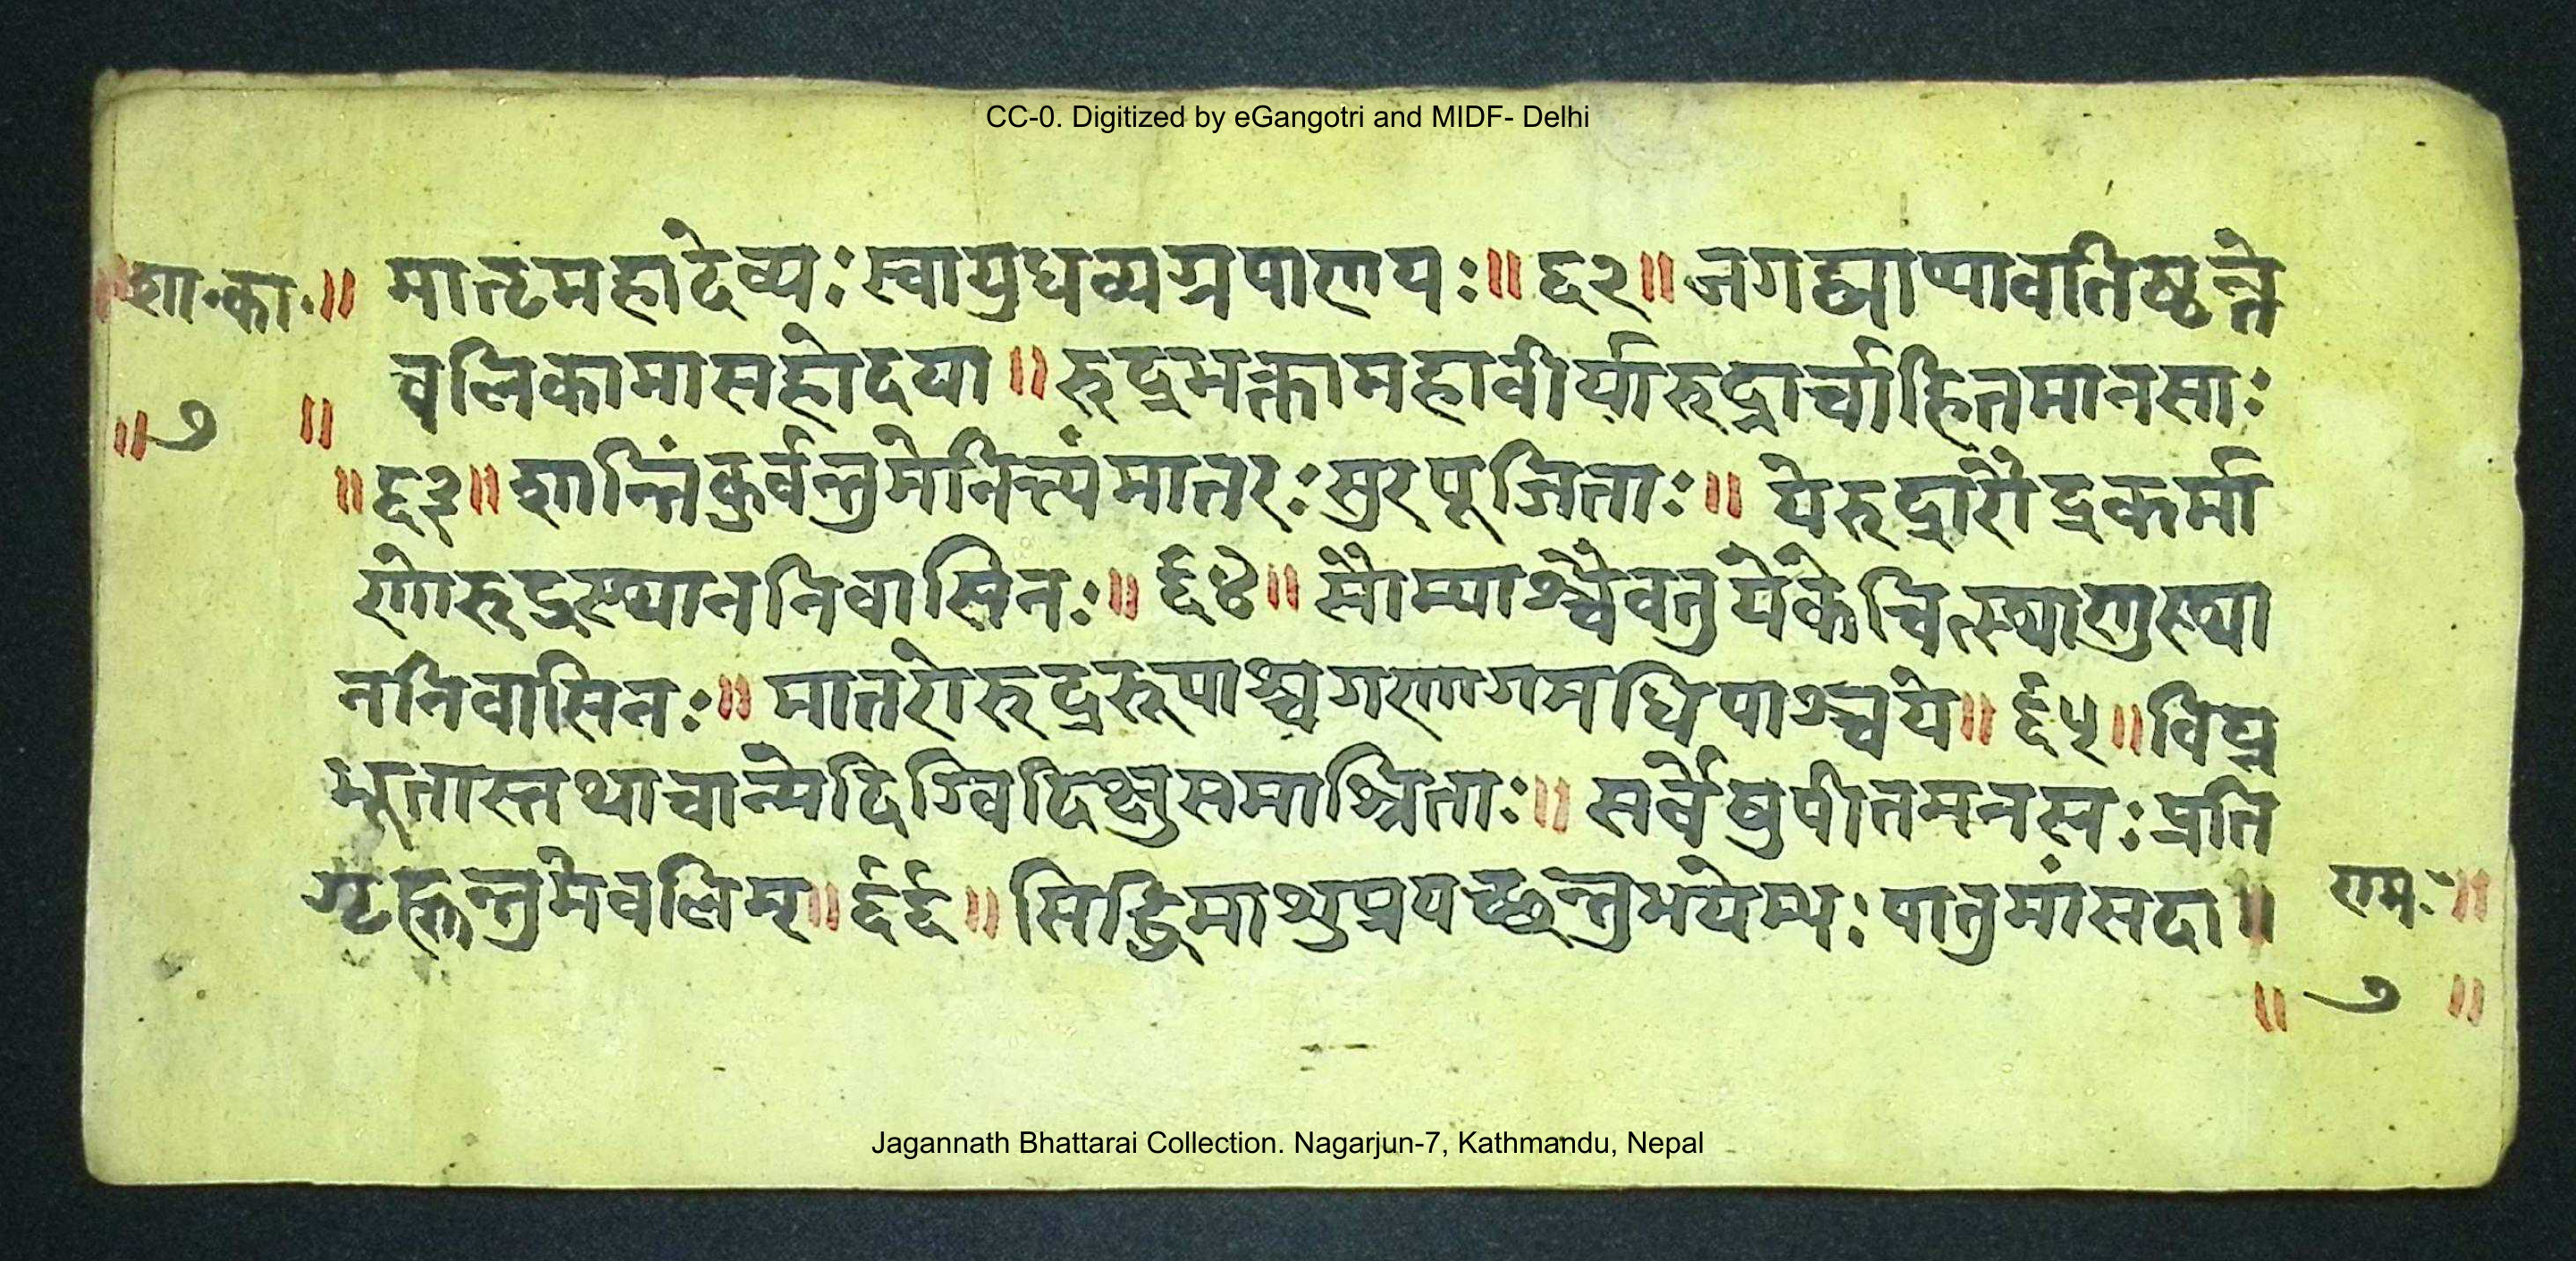 CC-0. Digitized by eGangotri and MIDF- Delhi
॥शा॰का॰॥ मातृमहादेव्यः स्वायुधव्यग्रपाणयः॥६२॥जगद्व्याप्यावतिष्ठन्ते
वलिकामामहोदया॥रुद्रभक्तामहावीर्यारुद्रार्चाहितमानसाः
॥७॥
॥६३॥शान्तिंकुर्वन्तुमेनित्यंमातरःसुरपूजिताः॥येरुद्रारौद्रकर्मा
णोरुद्रस्थाननिवासिनः॥६४॥सौम्याश्चैवतुयेकेचित्स्थाणुस्था
ननिवासिनः॥मातरोरुद्ररूपाश्चगणागमधिपाश्चये॥६५॥विघ्न
भूतास्तथाचान्येदिग्विदिक्षुसमाश्रिताः॥सर्वेषुपीतमनसः प्रति
गृह्णन्तुमेवलिम्॥६६॥सिद्धिमाशुप्रयच्छन्तुभयेभ्यः पातुमांसदा॥
रामः॥
॥७॥
Jagannath Bhattarai Collection. Nagarjun-7, Kathmandu, Nepal